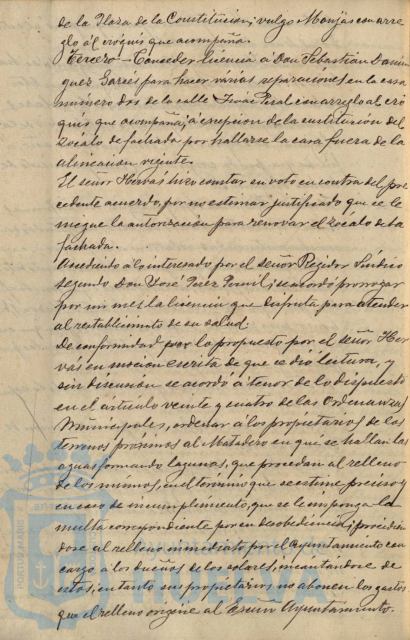 de la Plaza de la Constitución, vulgo Monjas con arre
glo al cróquis que acompaña.
Tercero.- Conceder licencia á Don Sebastián Domin
guez Garés para hacer varias reparaciones en la casa
número dos de la calle Isaac Peral con arreglo al cró
quis que acompaña; á excepcion de la sustitucion del
zócalo de fachada por hallarse la casa fuera de la
alineacion vigente.
El señor Hervás hizo constar su voto en contra del pre
cedente acuerdo, por no estimar justificado que se le
niegue la autorización para renovar el zócalo de la
fachada.
Accediendo á lo interesado por el señor Regidor Síndico
segundo Don José Paez, se acordó prorrogar
por un mes la licencia que disfruta para atender
al restablecimto de su salud.
De conformidad por lo propuesto por el señor Her
vás en mocion escrita de que se dió lectura, y
sin discusion se acordó á tenor de lo dispuesto
en el artículo veinte y cuatro de las Ordenanzas
Municipales, ordenar á los propietarios de los
terrenos próximos al Matadero en que se hallan las
aguas formando lagunas, que procedan al relleno
de los mismos, en el término que se estime preciso y
en caso de incumplimiento, que se le imponga la
multa correspondiente por su desobediencia, procedién
dose al relleno inmediato por el Ayuntamiento con
cargo á los dueños de los solares, incautandose de
estos, en tanto sus propietarios no abonen los gastos
que el relleno origine al Excmo Ayuntamiento.